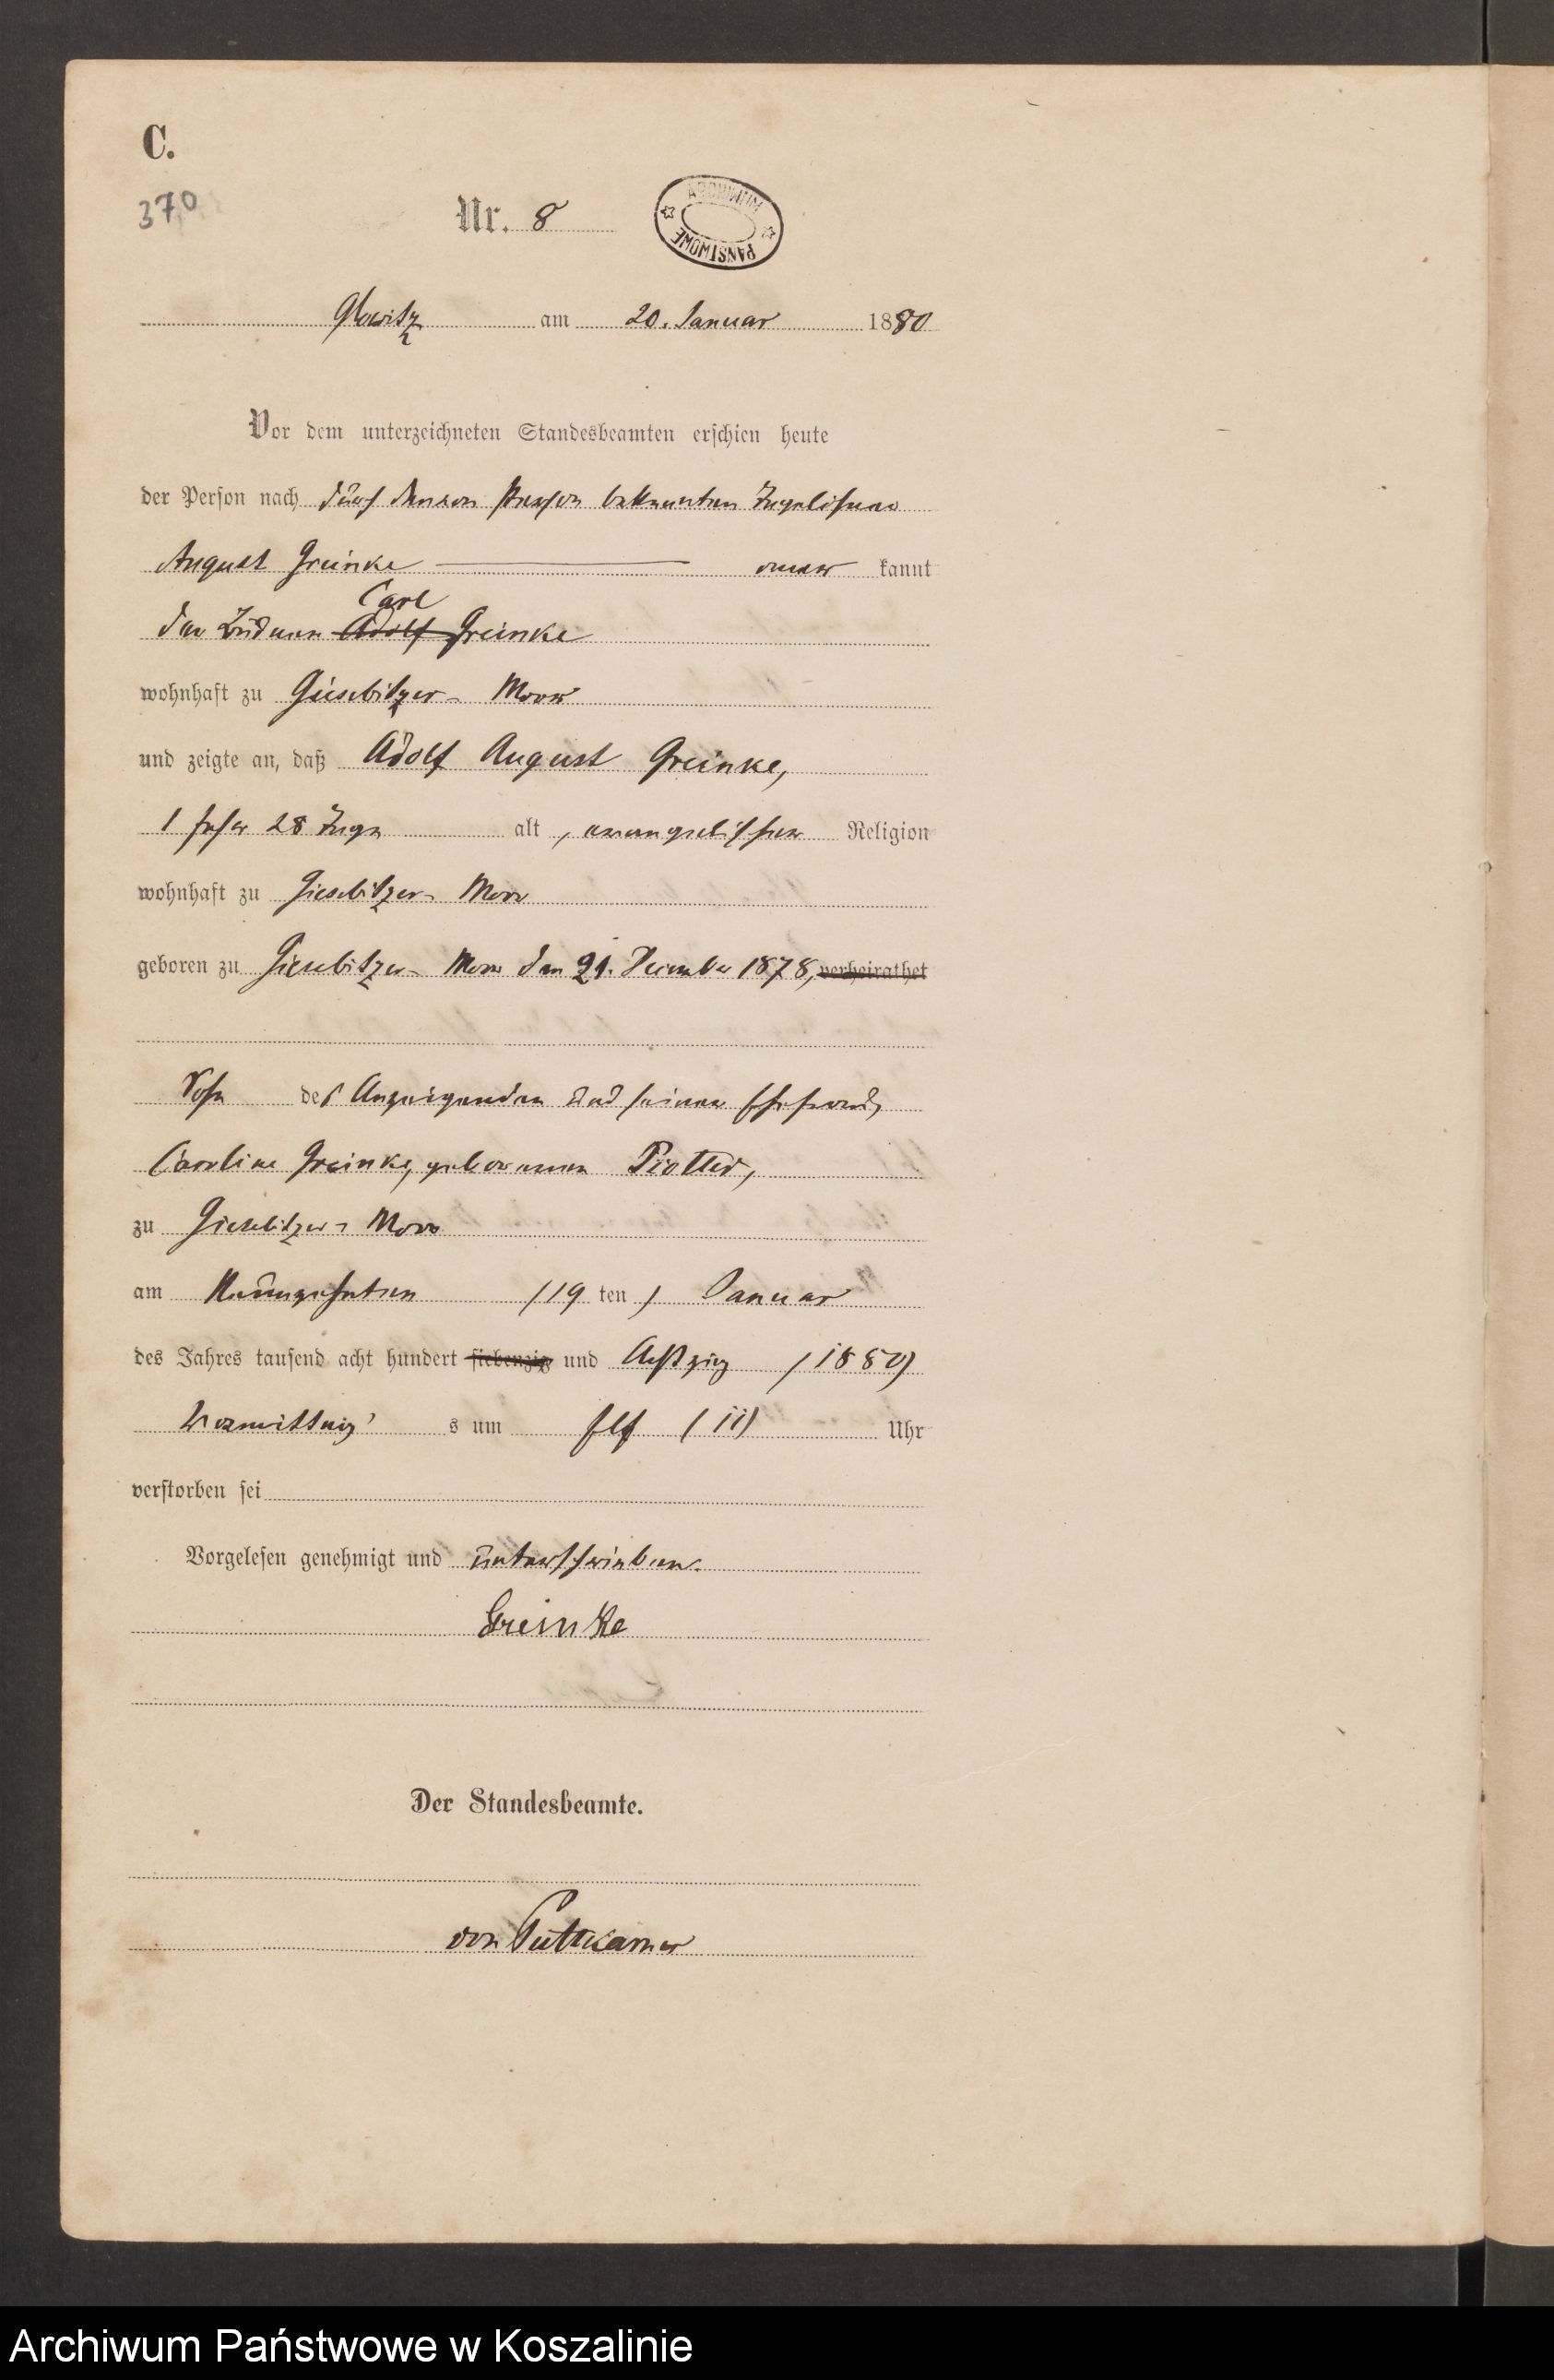 C.
370
Nr. 8
ARCHIWUM PAŃSTWOWE
Glowitz am 20. Januar 1880
Vor dem unterzeichneten Standesbeamten erschien heute
der Person nach durch dessen Person bekannten
August Greinke aner kannt
der Büdner Adolf Carl Greinke
wohnhaft zu Giesebitzer-Moor
und zeigte an, daß Adolf August Greinke,
1 Jahr 28 Tage alt, evangelischer Religion
wohnhaft zu Giesebitzer-Moor
geboren zu Giesebitzer-Moor den 21. December 1878, verheirathet
Sohn des Anzeigenden und seiner Ehefrau,
Caroline Greinke, geborenen Piotter,
zu Giesebitzer-Moor
am Neunzehnten (19 ten) Januar
des Jahres tausend acht hundert siebenzig und Achtzig (1880)
Vormittag s um Elf (11) Uhr
verstorben sei
Vorgelesen genehmigt und unterschrieben.
Greinke
Der Standesbeamte.
von Puttkamer
Archiwum Państwowe w Koszalinie